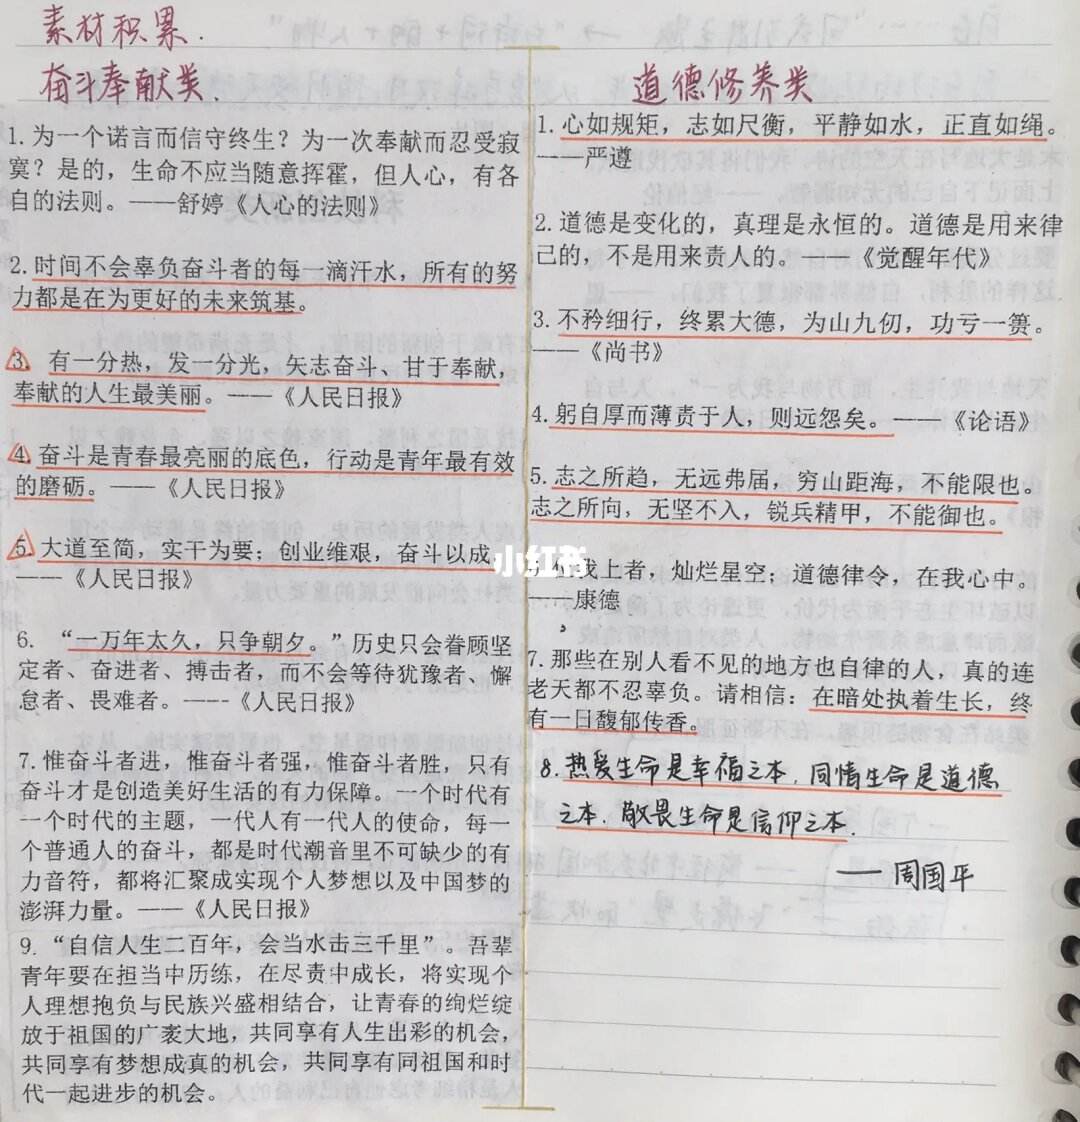 素材积累.
奋斗奉献类.
1.为一个诺言而信守终生？为一次奉献而忍受寂
寞？是的，生命不应当随意挥霍，但人心，有各
自的法则。——舒婷《人心的法则》
2.时间不会辜负奋斗者的每一滴汗水，所有的努
力都是在为更好的未来筑基。
3. 有一分热，发一分光，矢志奋斗、甘于奉献，
奉献的人生最美丽。——《人民日报》
4.奋斗是青春最亮丽的底色，行动是青年最有效
的磨砺。——《人民日报》
5.大道至简，实干为要；创业维艰，奋斗以成。
——《人民日报》
6. “一万年太久，只争朝夕。”历史只会眷顾坚
定者、奋进者、搏击者，而不会等待犹豫者、懈
怠者、畏难者。----《人民日报》
7.惟奋斗者进，惟奋斗者强，惟奋斗者胜，只有
奋斗才是创造美好生活的有力保障。一个时代有
一个时代的主题，一代人有一代人的使命，每一
个普通人的奋斗，都是时代潮音里不可缺少的有
力音符，都将汇聚成实现个人梦想以及中国梦的
澎湃力量。——《人民日报》
9.“自信人生二百年，会当水击三千里”。吾辈
青年要在担当中历练，在尽责中成长，将实现个
人理想抱负与民族兴盛相结合，让青春的绚烂绽
放于祖国的广袤大地，共同享有人生出彩的机会，
共同享有梦想成真的机会，共同享有同祖国和时
代一起进步的机会。
道德修养类
1.心如规矩，志如尺衡，平静如水，正直如绳。
——严遵
2.道德是变化的，真理是永恒的。道德是用来律
己的，不是用来责人的。——《觉醒年代》
3.不矜细行，终累大德，为山九仞，功亏一篑。
——《尚书》
4.躬自厚而薄责于人，则远怨矣。——《论语》
5.志之所趋，无远弗届，穷山距海，不能限也。
志之所向，无坚不入，锐兵精甲，不能御也。
小红书
上者，灿烂星空；道德律令，在我心中
——康德
7.那些在别人看不见的地方也自律的人，真的连
老天都不忍辜负。请相信：在暗处执着生长，终
有一日馥郁传香。
8.热爱生命是幸福之本，同情生命是道德
之本，敬畏生命是信仰之本.
——周国平